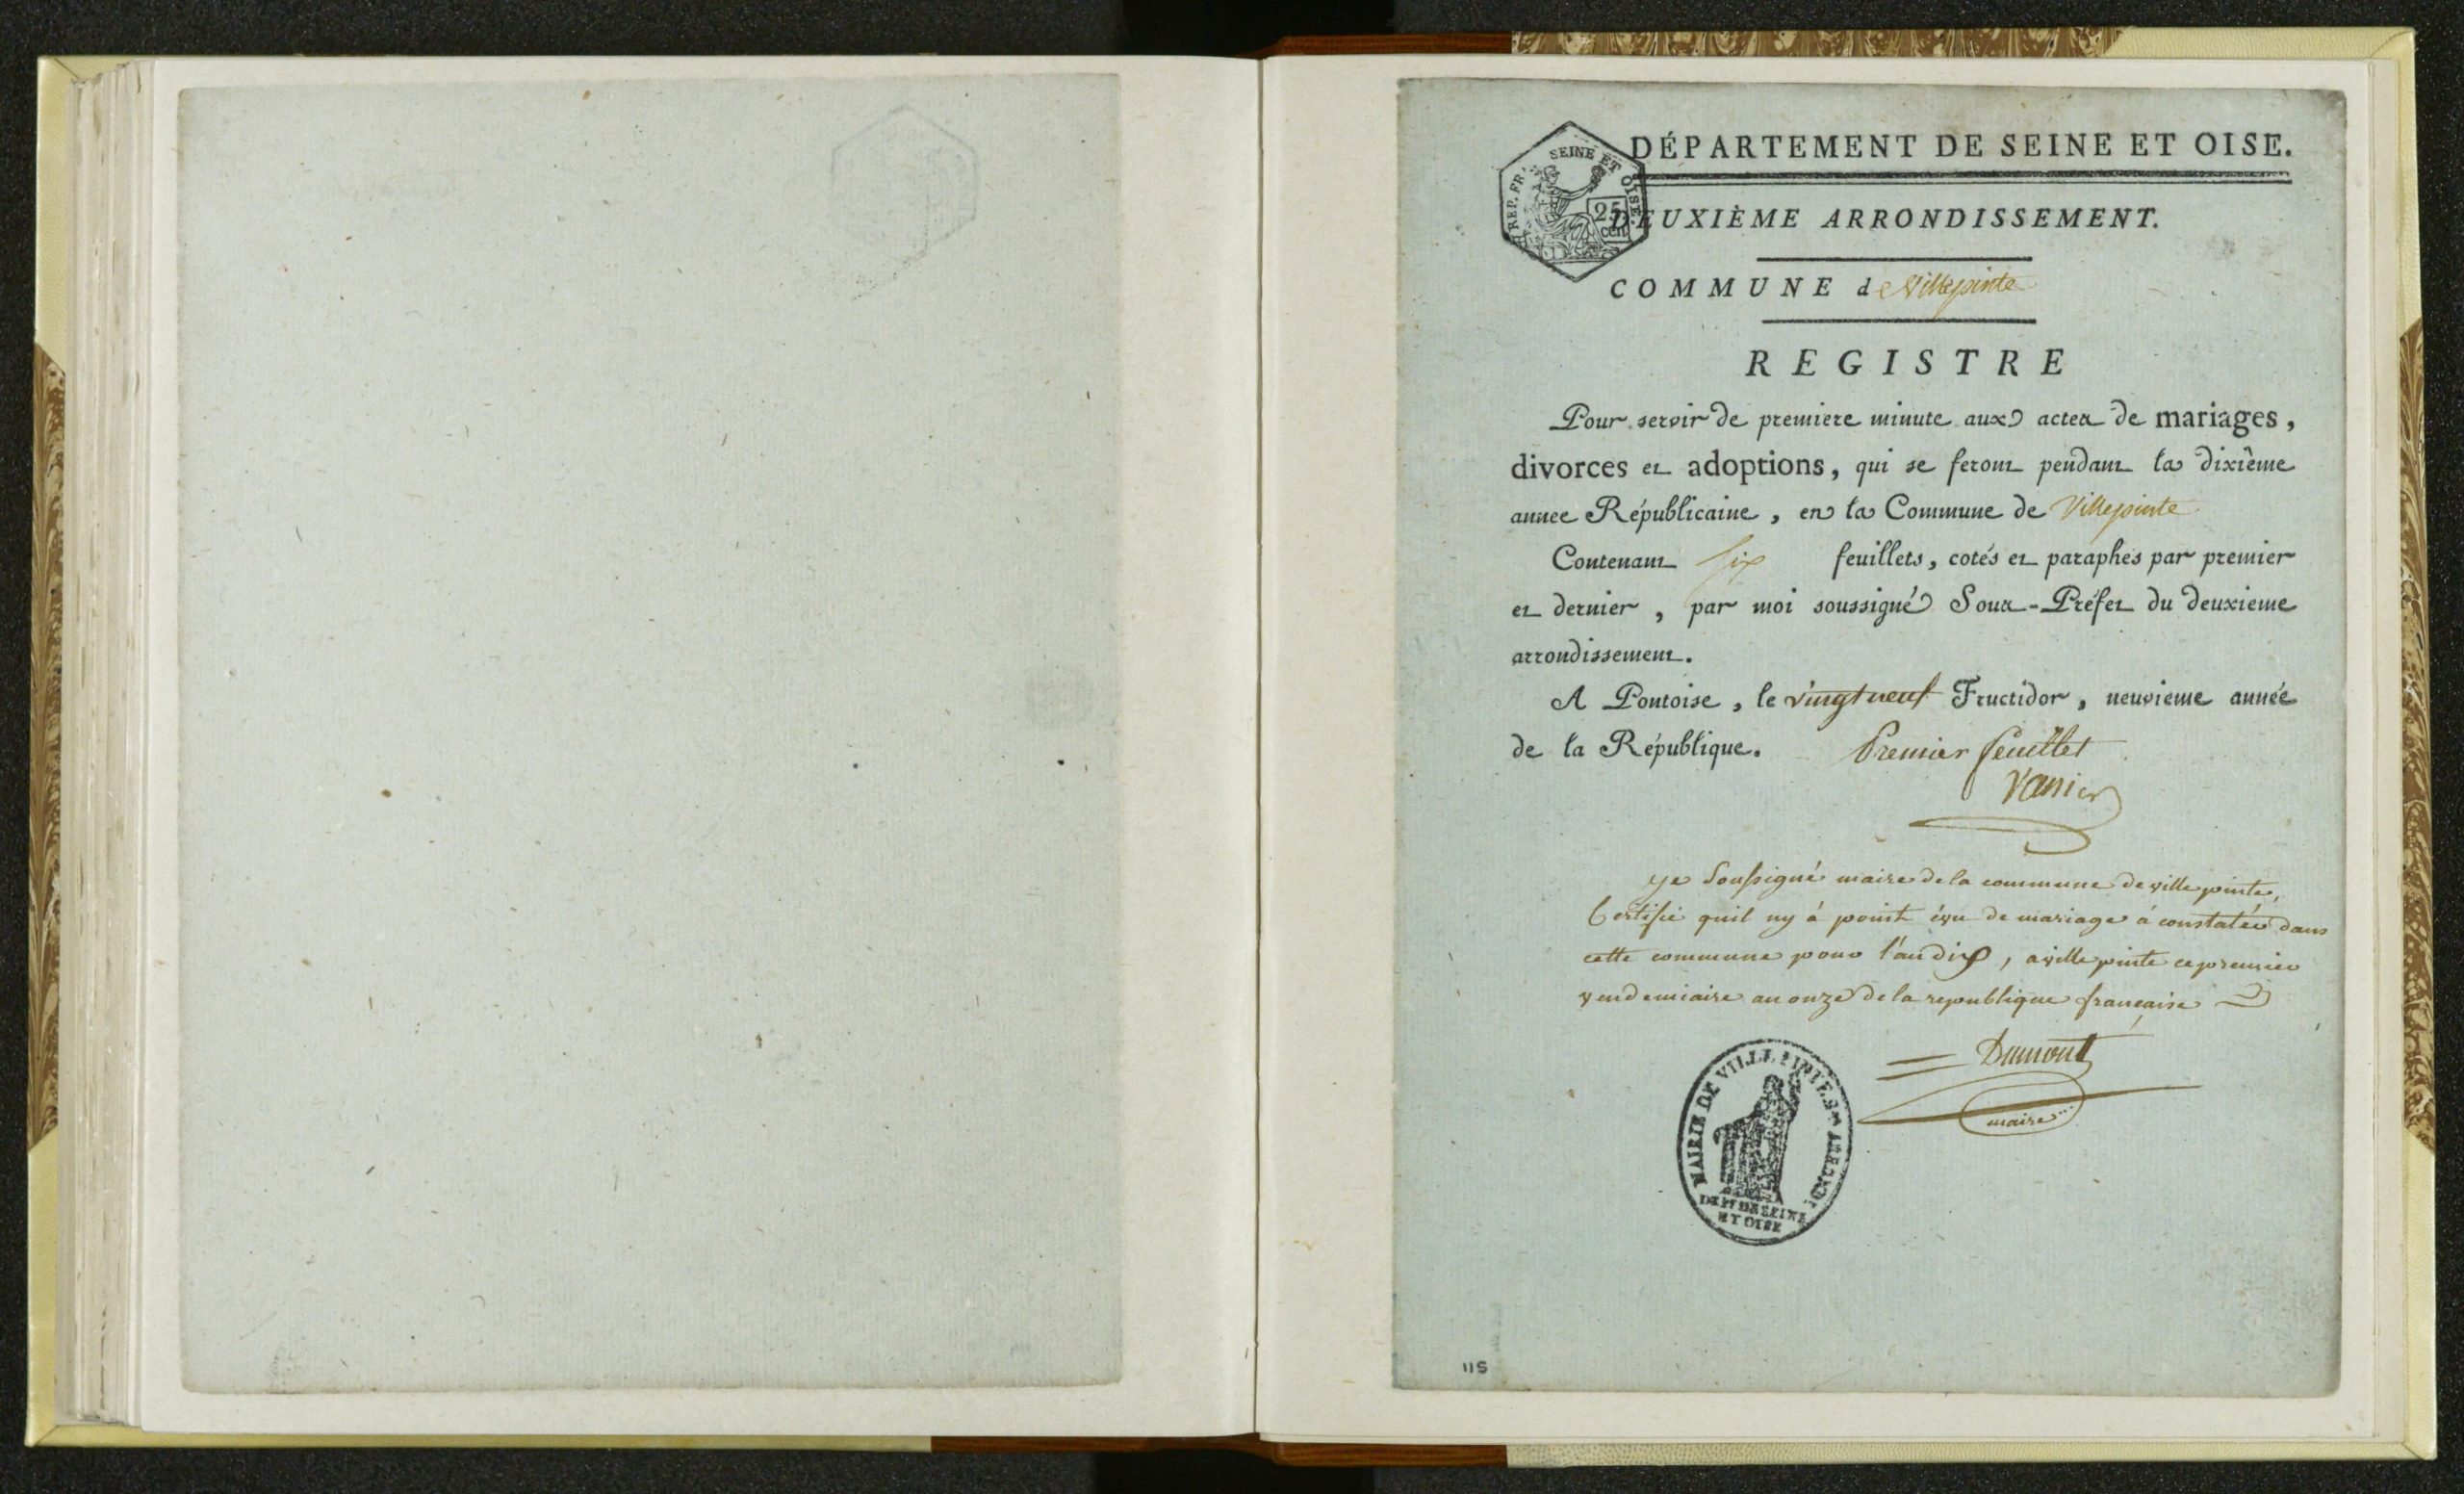 DÉPARTEMENT DE SEINE ET OISE.
REP. FR. SEINE ET OISE.
25 cen
DEUXIÈME ARRONDISSEMENT.
COMMUNE de Villepinte
REGISTRE
Pour servir de premiere minute aux actes de mariages,
divorces et adoptions, qui se feront pendant la dixième
annee Républicaine, en la Commune de Villepinte
Contenant six feuillets, cotés et paraphés par premier
et dernier, par moi soussigné Sous-Préfet du deuxieme
arrondissement.
A Pontoise, le vingt neuf Fructidor, neuvieme année
de la République. Premier feuillet
Vanier
Je Soussigné maire de la commune de villepinte,
Certifie quil ny à point égu de mariage à constatée dans
cette commune pour l'an dix, a villepinte ce premier
vendemiaire an onze de la republique française
Dumont
maire
MAIRIE DE VILLEPINTE 2me ARRONDt
DEPt DE SEINE
ET OISE
115